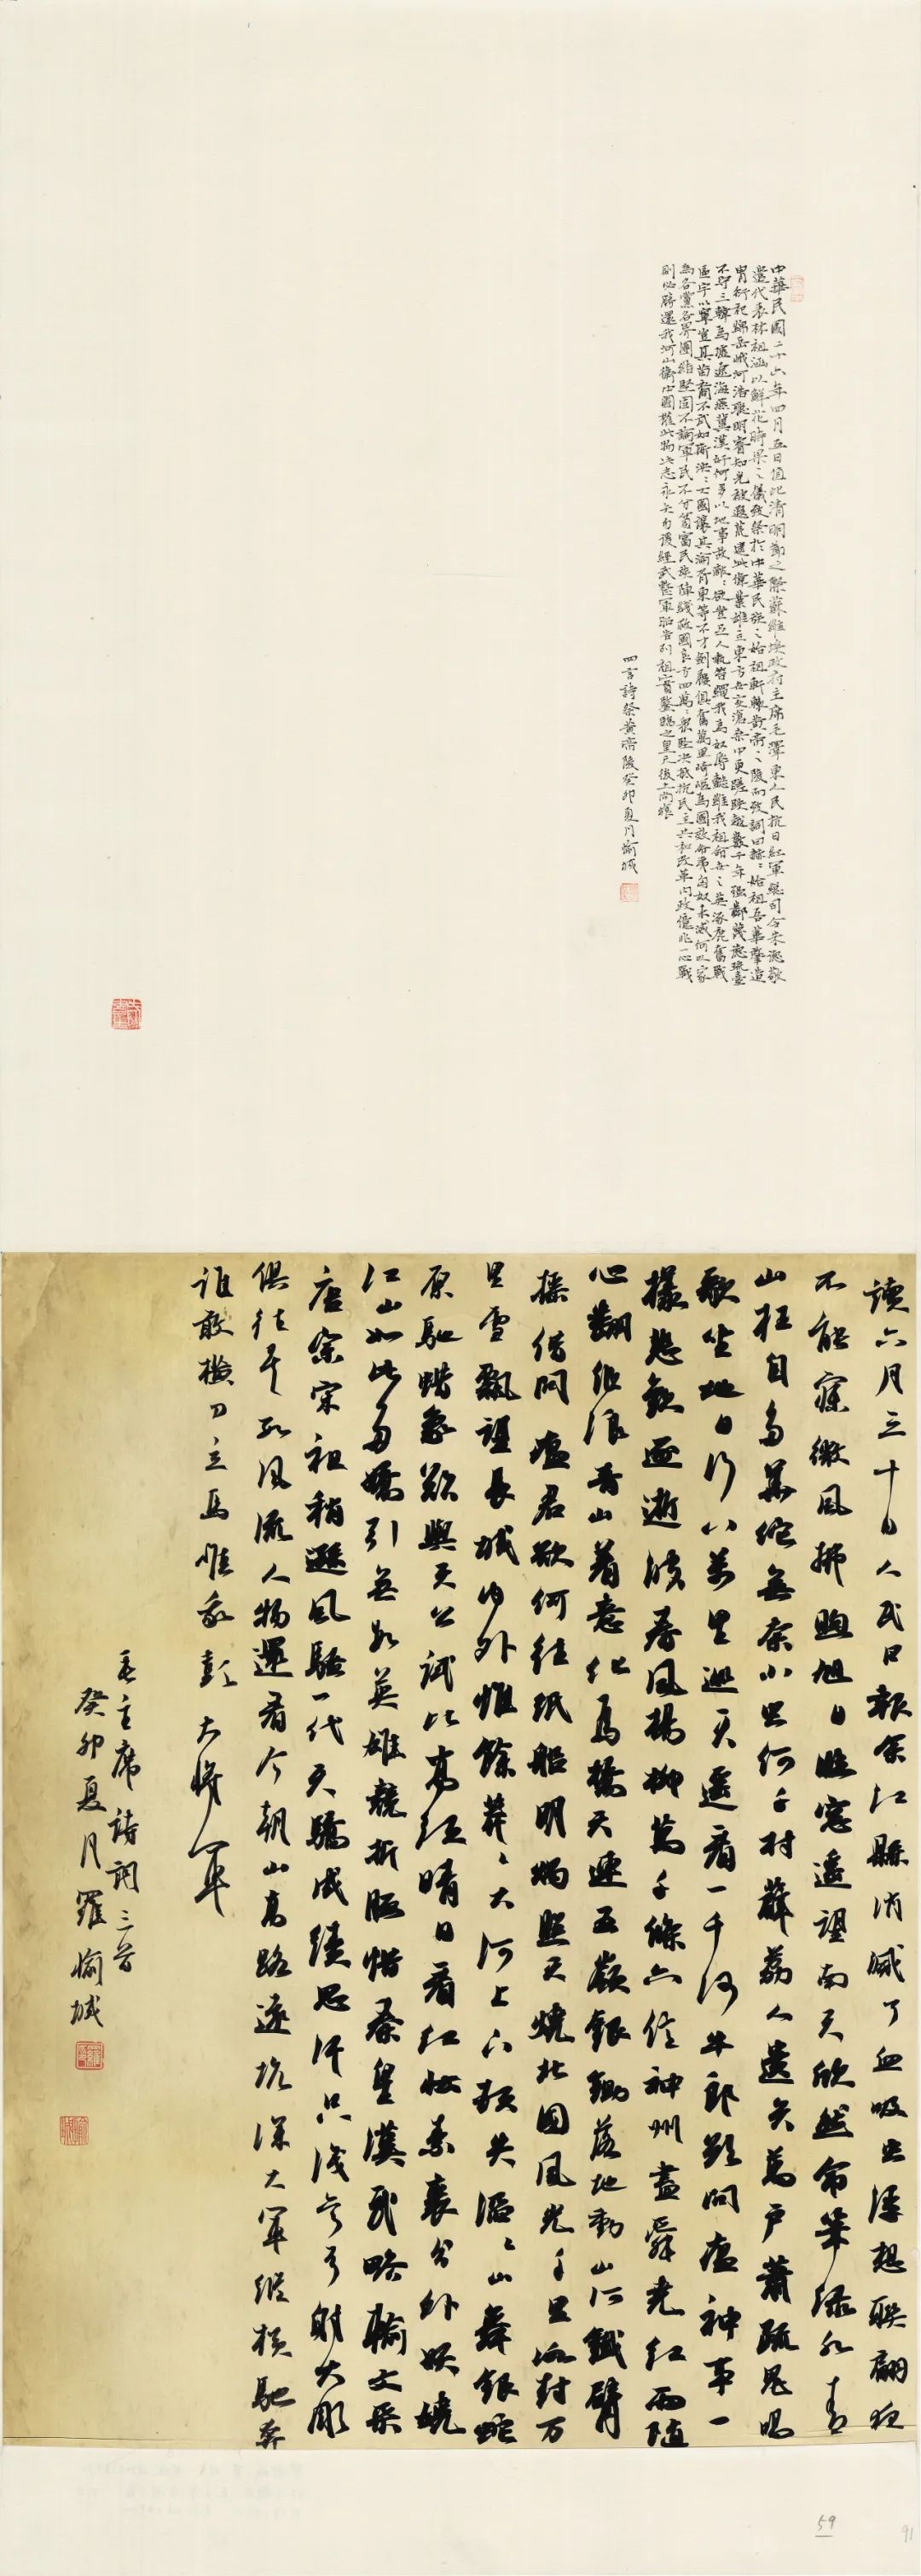 中華民國二十六年四月五日值此清明節之際蘇維埃政府主席毛澤東人民抗日紅軍總司令朱德敬
遣代表林祖涵以鮮花時果之儀致祭於中華民族之始祖軒轅黃帝之陵而致詞曰赫赫始祖吾華肇造
冑衍祀綿岳峨河浩聰明睿知光被遐荒建此偉業雄立東方世變滄桑中更蹉跌越數千年強鄰蔑德琉臺
不守三韓為墟遼海燕冀漢奸何多以地事敵敵欲豈足人執笞繩我為奴辱懿維我祖命世之英涿鹿奮戰
區宇以寧豈其苗裔不武如斯泱泱大國讓其淪胥東等不才劍屨俱奮萬里崎嶇為國效命夷匈奴未滅何以家
為各黨各界團結堅固不論軍民不分貧富民族陣線救國良方四萬萬衆堅決抵抗民主共和改革內政億兆一心戰
則必勝還我河山衛中國權此物此志永矢勿諼經武整軍昭告列祖實鑒臨之皇天后土尚饗
四言詩祭黃帝陵癸卯夏月愉城
讀六月三十日人民日報余江縣消滅了血吸虫浮想聯翩夜
不能寐微風拂煦旭日臨窗遙望南天欣然命筆綠水青
山枉自多華佗無奈小虫何千村薜荔人遺矢萬戶蕭疏鬼唱
歌坐地日行八萬里巡天遙看一千河牛郎欲問瘟神事一
樣悲歡逐逝波春風楊柳萬千條六億神州盡舜堯紅雨隨
心翻作浪青山着意化為橋天連五嶺銀鋤落地動山河鐵臂
搖借問瘟君欲何往紙船明燭照天燒北國風光千里冰封万
里雪飄望長城內外惟餘莽莽大河上下頓失滔滔山舞銀蛇
原馳蠟象欲與天公試比高須晴日看紅妝素裹分外妖嬈
江山如此多嬌引無數英雄競折腰惜秦皇漢武略輸文采
唐宗宋祖稍遜風騷一代天驕成績思汗只識彎弓射大雕
俱往矣數風流人物還看今朝山高路遠坑深大軍縱橫馳奔
誰敢橫刀立馬惟我彭大將軍
毛主席詩詞三首
癸卯夏月羅愉城
59
91